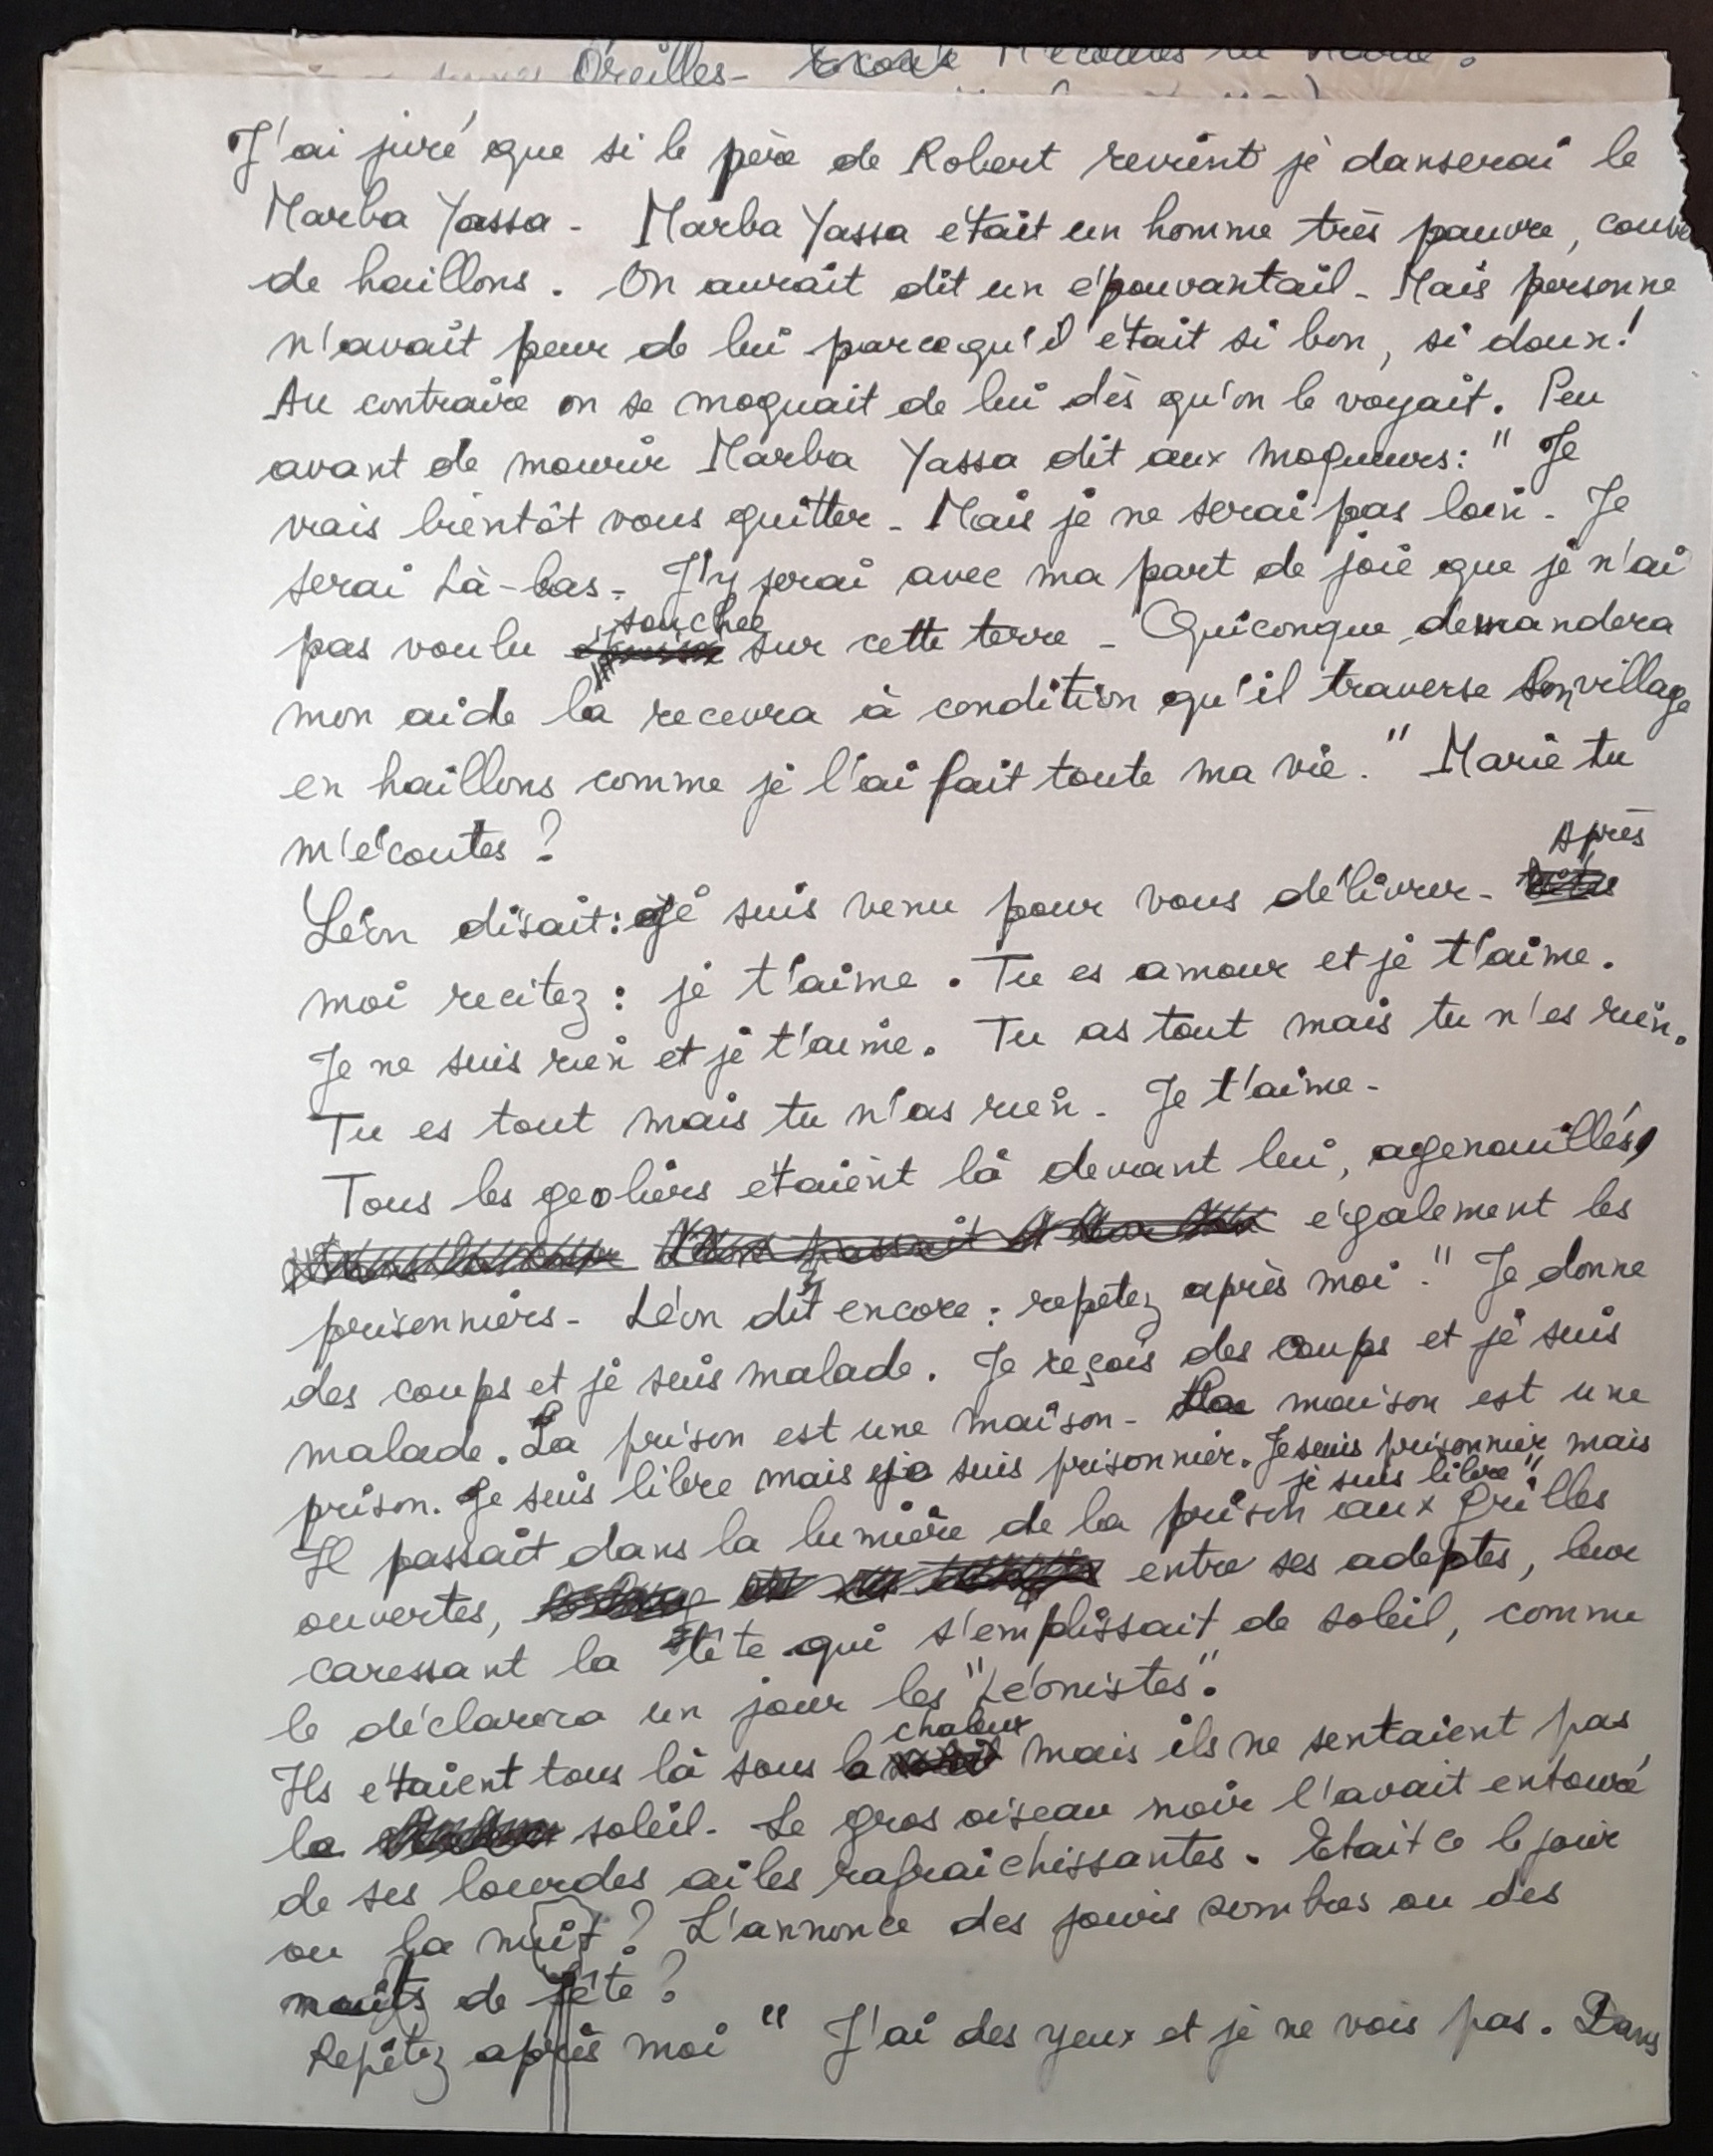 Oreilles - M'écoutes tu Marie ?
J'ai juré que si le père de Robert revient je danserai le
Marba Yassa - Marba Yassa était un homme très pauvre, couve
de haillons. On aurait dit un épouvantail - Mais personne
n'avait peur de lui parcequ'il était si bon, si doux!
Au contraire on se moquait de lui dès qu'on le voyait. Peu
avant de mourir Marba Yassa dit aux moqueurs: " Je
vais bientôt vous quitter - Mais je ne serai pas loin - Je
serai Là-bas - J'y serai avec ma part de joie que je n'ai
pas voulu touchee sur cette terre - Quiconque demandera
mon aide la recevra à condition qu'il traverse son village
en haillons comme je l'ai fait toute ma vie. " Marie tu
m'écoutes ?
Léon disait: Je suis venu pour vous délivrer - Après
moi recitez : je t'aime . Tu es amour et je t'aime.
Je ne suis rien et je t'aime. Tu as tout mais tu n'es rien.
Tu es tout mais tu n'as rien - Je t'aime -
Tous les geoliers étaient là devant lui, agenouillés,
également les
prisonniers - Léon dit encore : repetez après moi " Je donne
des coups et je suis malade. Je reçois des coups et je suis
malade. La prison est une maison - La maison est une
prison. Je suis libre mais je suis prisonnier. Je suis prisonnier mais
je suis libre".
Il passait dans la lumière de la prison aux grilles
ouvertes, entre ses adeptes, leur
caressant la tête qui s'emplissait de soleil, comme
le déclarera un jour les "Léonistes".
Ils étaient tous là sous la chaleur mais ils ne sentaient pas
la soleil - Le gros oiseau noir l'avait entouré
de ses lourdes ailes rafraichissantes. Etait ce le jour
ou la nuit ? L'annonce des jours sombres ou des
nuits de fête ?
Repétez après moi " J'ai des yeux et je ne vois pas. Dans